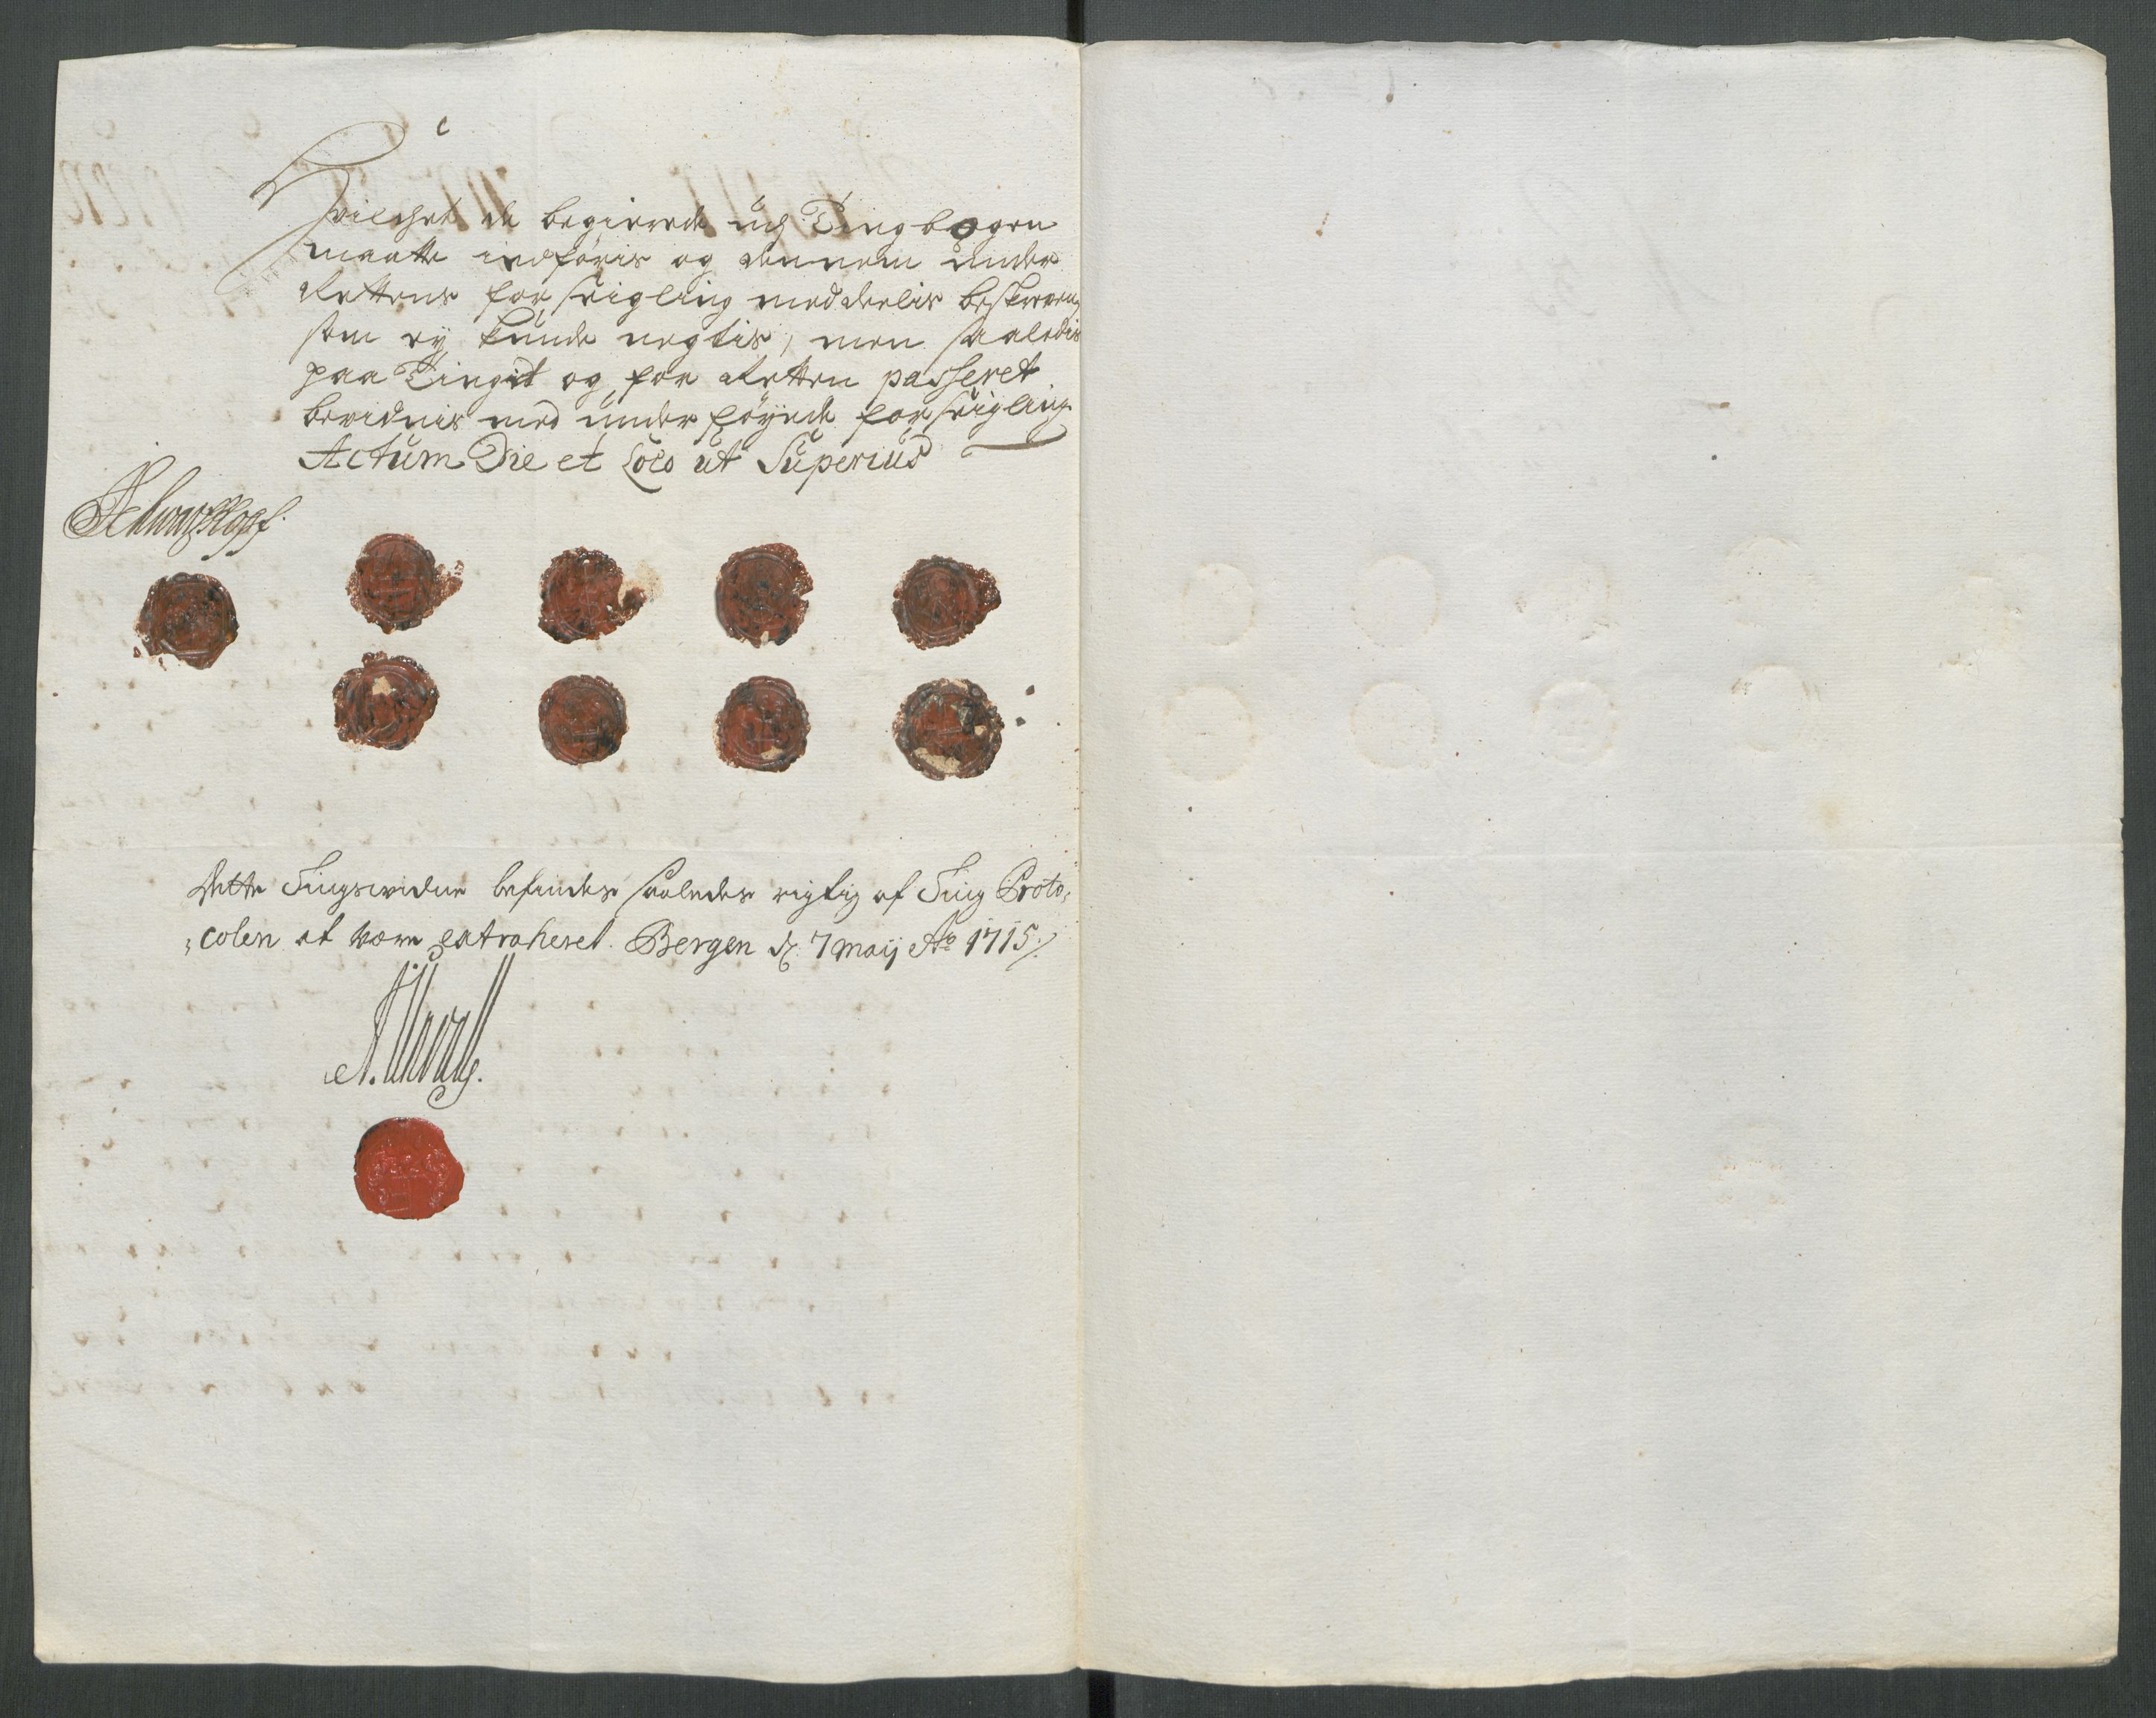 Hvilchet de begierede udj Tingbogen
maatte indføris og dennem under
Rettens forseigling meddeelis beskreven,
som ey kunde negtis, men saaledis
paa Tinget og for Retten passeret
bevidnis med underføyede forseigling
Actum Die et Loco ut Superius
Schwartzkopf.
Dette Tingsvidne befindes saaledes rigtig af Ting Proto-
colen at være extraheret. Bergen d. 7 Maij Ao 1715